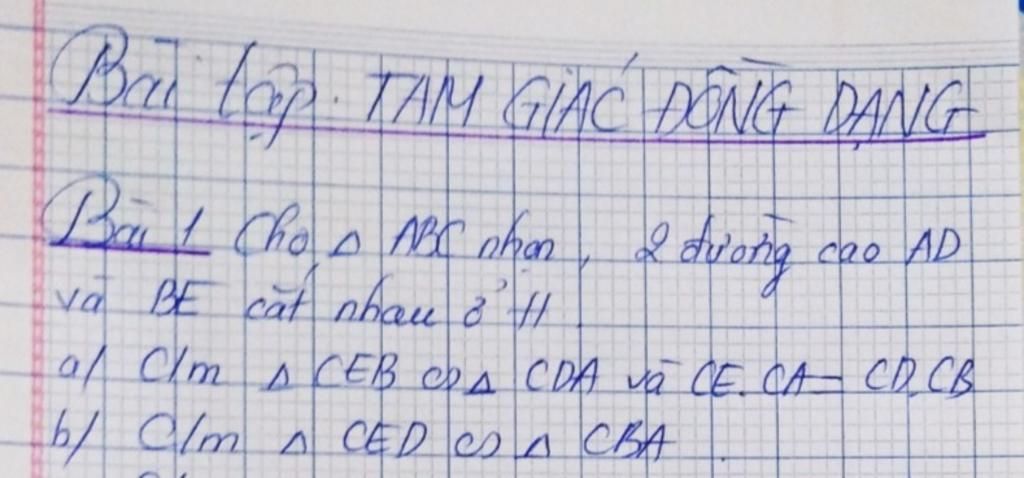 Bài tập. TAM GIÁC ĐỒNG DẠNG
Bài 1 Cho Δ ABC nhọn, 2 đường cao AD
và BE cắt nhau ở H
a/ C/m Δ CEB ∽ Δ CDA và CE.CA = CD.CB
b/ C/m Δ CED ∽ Δ CBA